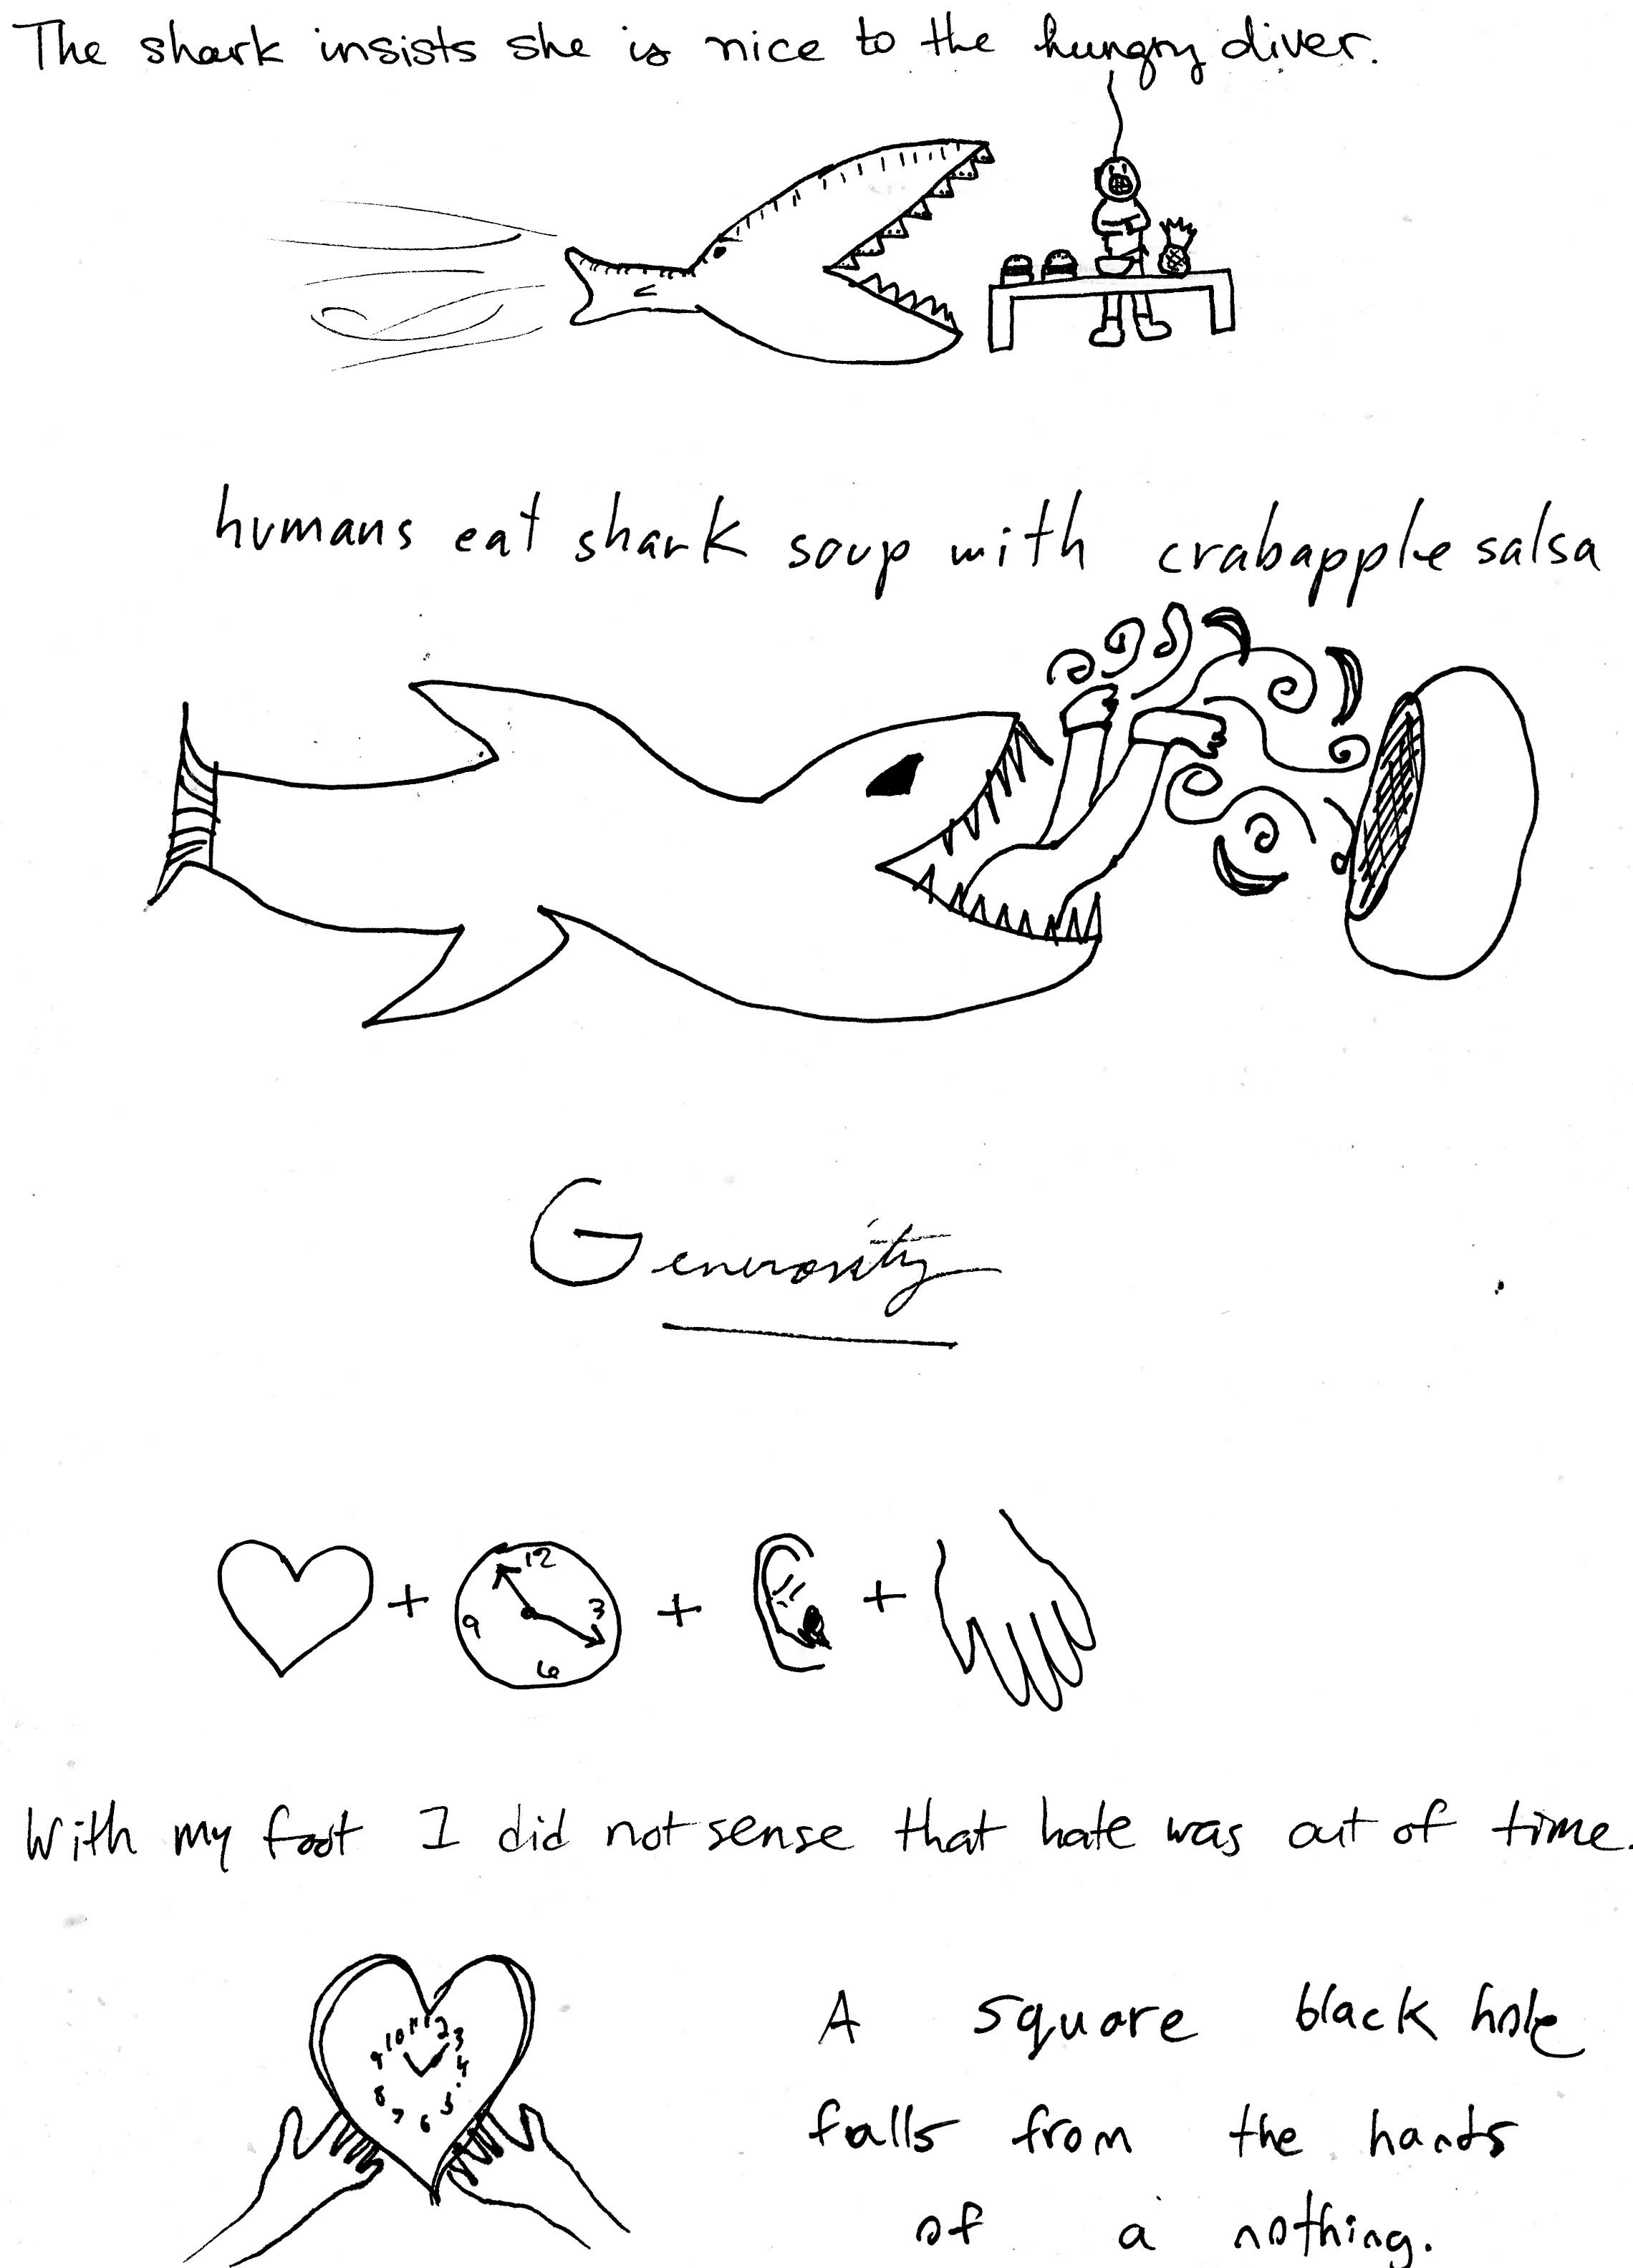 The shark insists she is nice to the hungry diver.
humans eat shark soup with crabapple salsa
Generosity
+ 12 3 6 9 + +
With my foot I did not sense that hate was out of time.
11 12 10 3 9 4 8 5 7 6
A square black hole
falls from the hands
of a nothing.